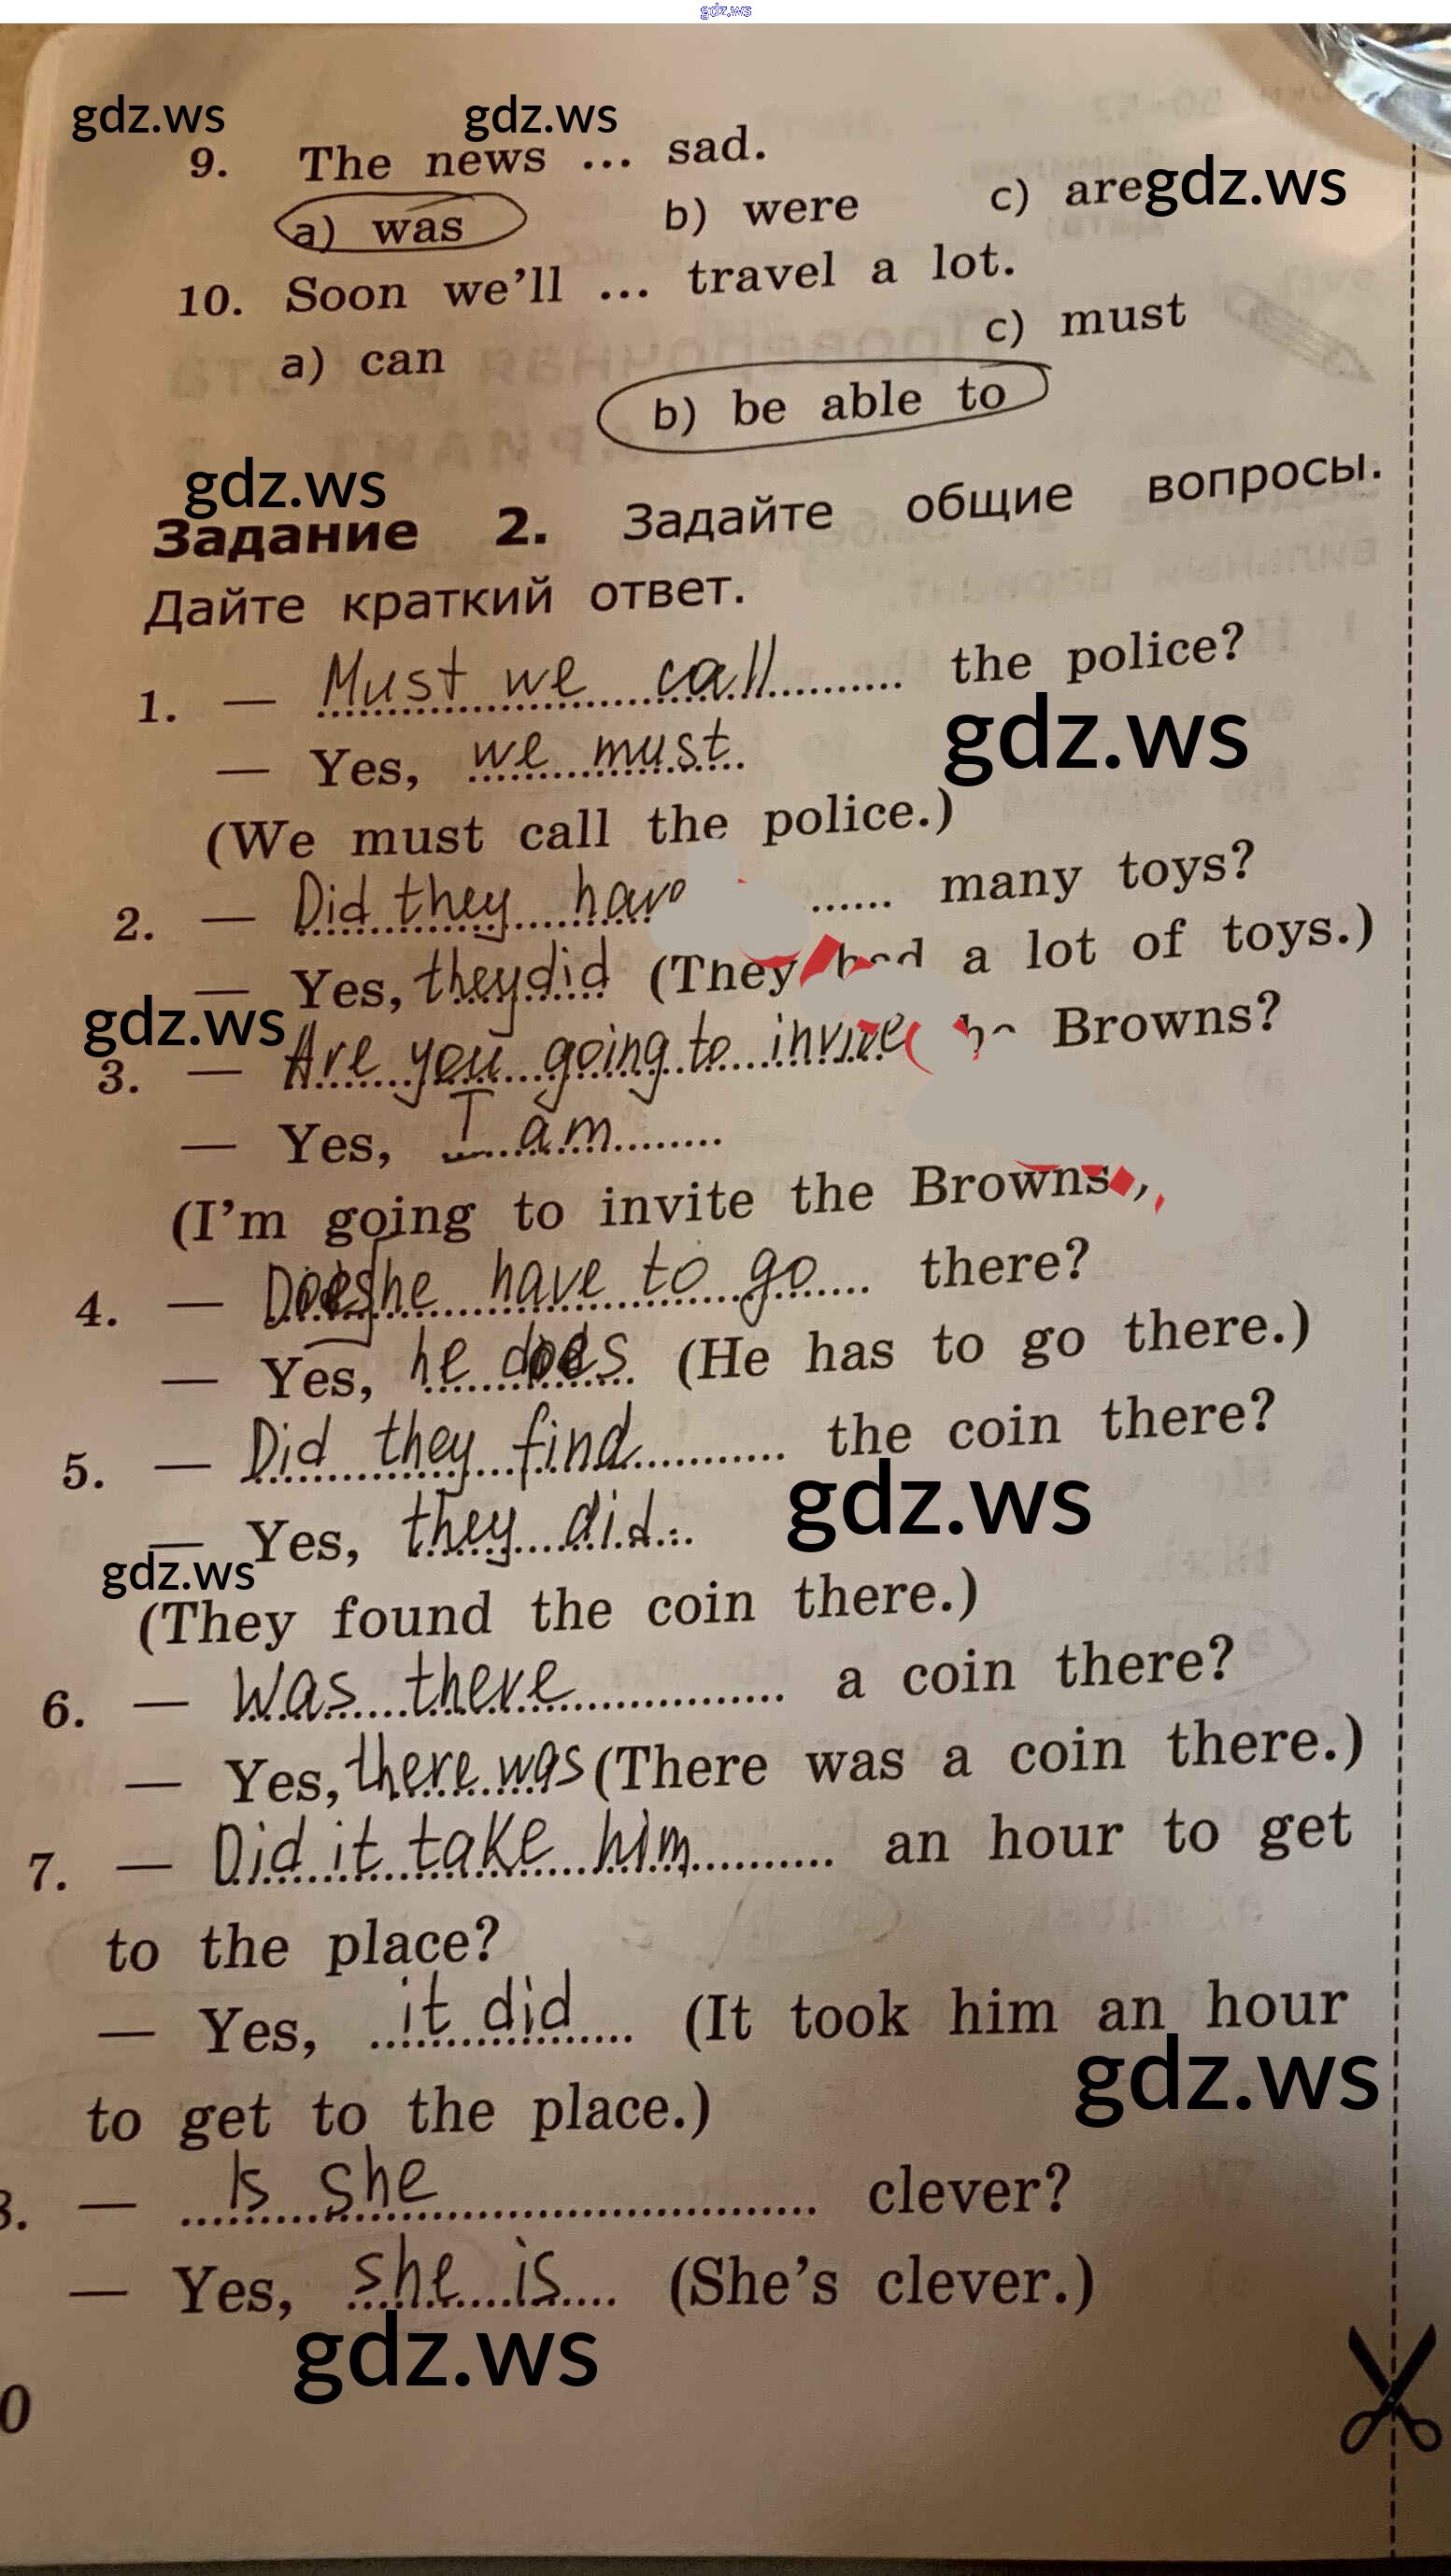 gdz.ws
gdz.ws gdz.ws
9. The news ... sad.
a) was b) were c) are gdz.ws
10. Soon we'll ... travel a lot.
a) can c) must
b) be able to
gdz.ws
Задание 2. Задайте общие вопросы.
Дайте краткий ответ.
1. — Must we call the police?
— Yes, we must.
gdz.ws
(We must call the police.)
2. — Did they have many toys?
— Yes, they did (They had a lot of toys.)
gdz.ws
3. — Are you going to invite Browns?
— Yes, I am
(I'm going to invite the Browns
4. — Does he have to go there?
— Yes, he does (He has to go there.)
5. — Did they find the coin there?
gdz.ws
— Yes, they did.
gdz.ws
(They found the coin there.)
6. — Was there a coin there?
— Yes, there was (There was a coin there.)
7. — Did it take him an hour to get
to the place?
— Yes, it did (It took him an hour
gdz.ws
to get to the place.)
— Is she clever?
— Yes, she is (She's clever.)
gdz.ws
0